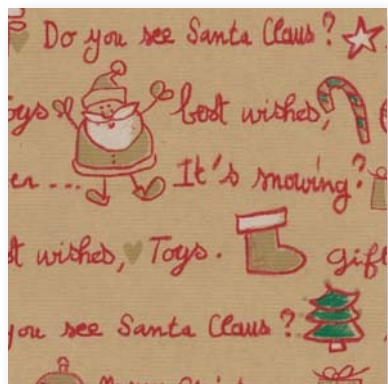 Do you see Santa Claus?
oys best wishes,
er.... It's snowing?
t wishes, Toys. gift
you see Santa Claus?